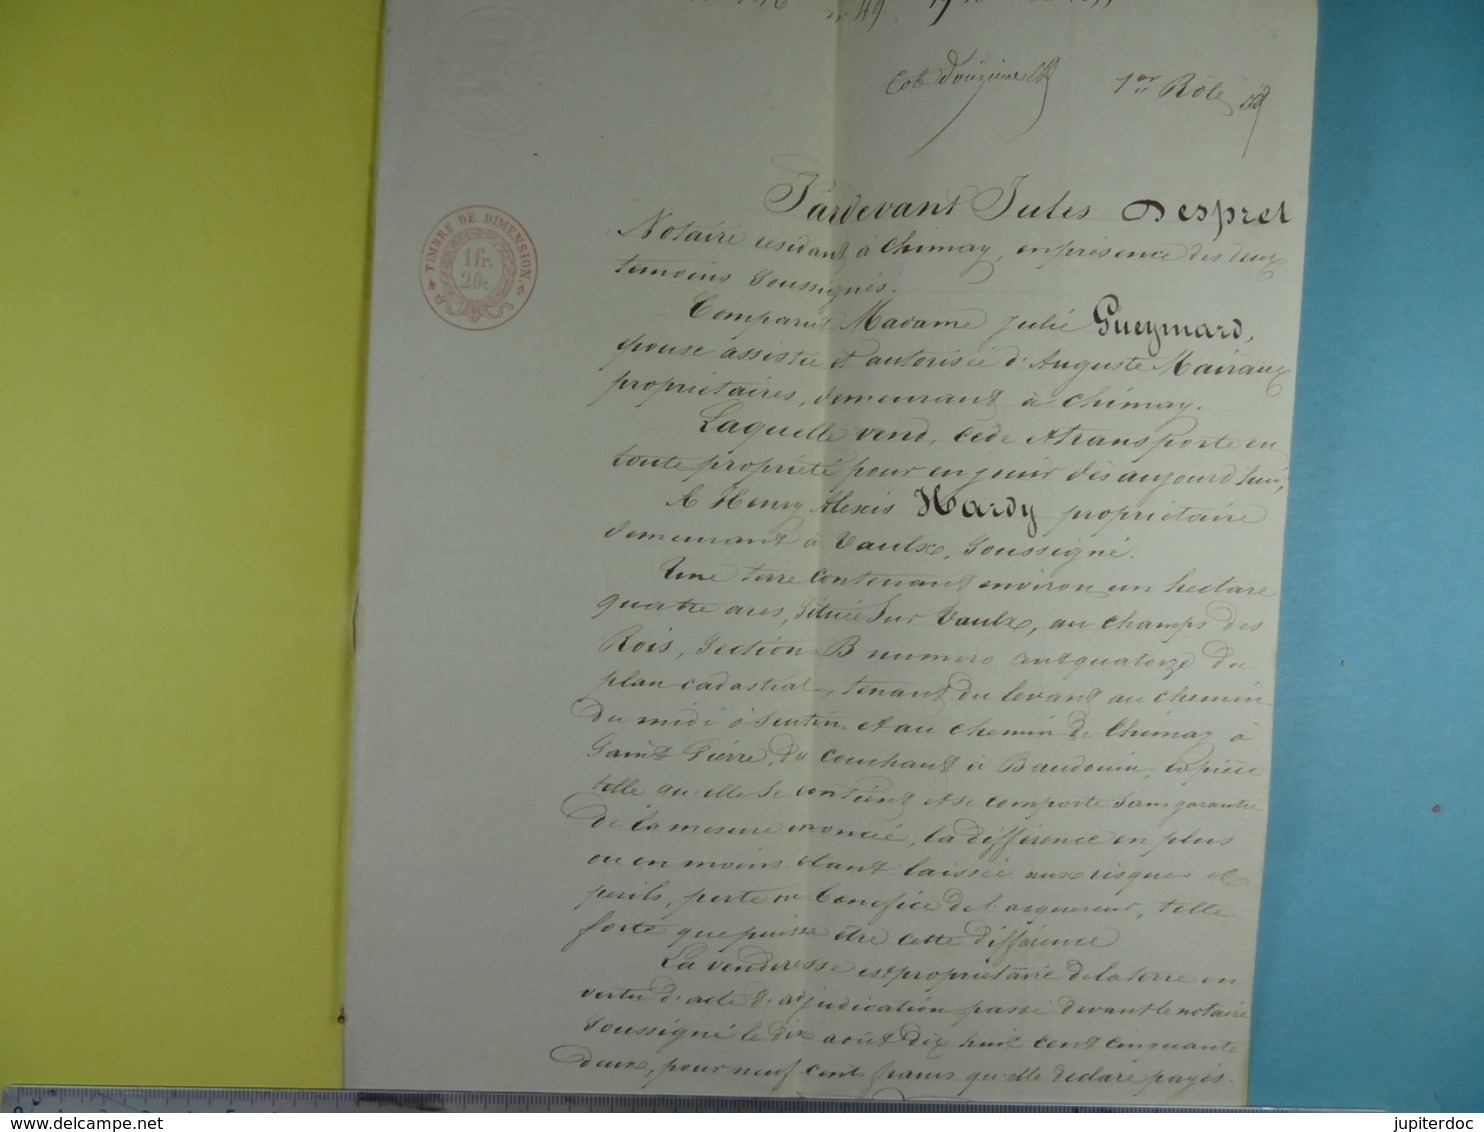 n° 49
Cote Douzième
1er Rôle
TIMBRE DE DIMENSION
1 fr.
20 c
Pardevant Jules Despret
Notaire residant à Chimay, en présence des deux
temoins soussignés.
Comparut Madame Julie Gueymard,
épouse assistée et autorisée d'Auguste Mairaux
proprietaires, demeurant à Chimay.
Laquelle vend, cède et transporte en
toute propriété pour en jouir dès aujourd'hui,
A Henry Alexis Hardy propriétaire
demeurant à Vaulx, soussigné.
Une terre contenant environ un hectare
quatre ares, située sur Vaulx, au champs des
Rois, Section B numéro cent quatorze du
plan cadastral, tenant du levant au chemin
du midi à Sentin et au chemin de Chimay à
Saint Pierre, du couchant à Baudouin, la pièce
telle qu'elle se contient et se comporte sans garantie
de la mesure enoncée, la différence en plus
ou en moins étant laissée aux risques et
perils, perte ou bénéfice de l'acquereur, telle
forte que puisse être cette différence
La venderesse est propriétaire de la terre en
vertu d'acte d'adjudication passé devant le notaire
soussigné le dix août dix huit cent cinquante
deux, pour neuf cents francs qu'elle déclare payés.
jupiterdoc